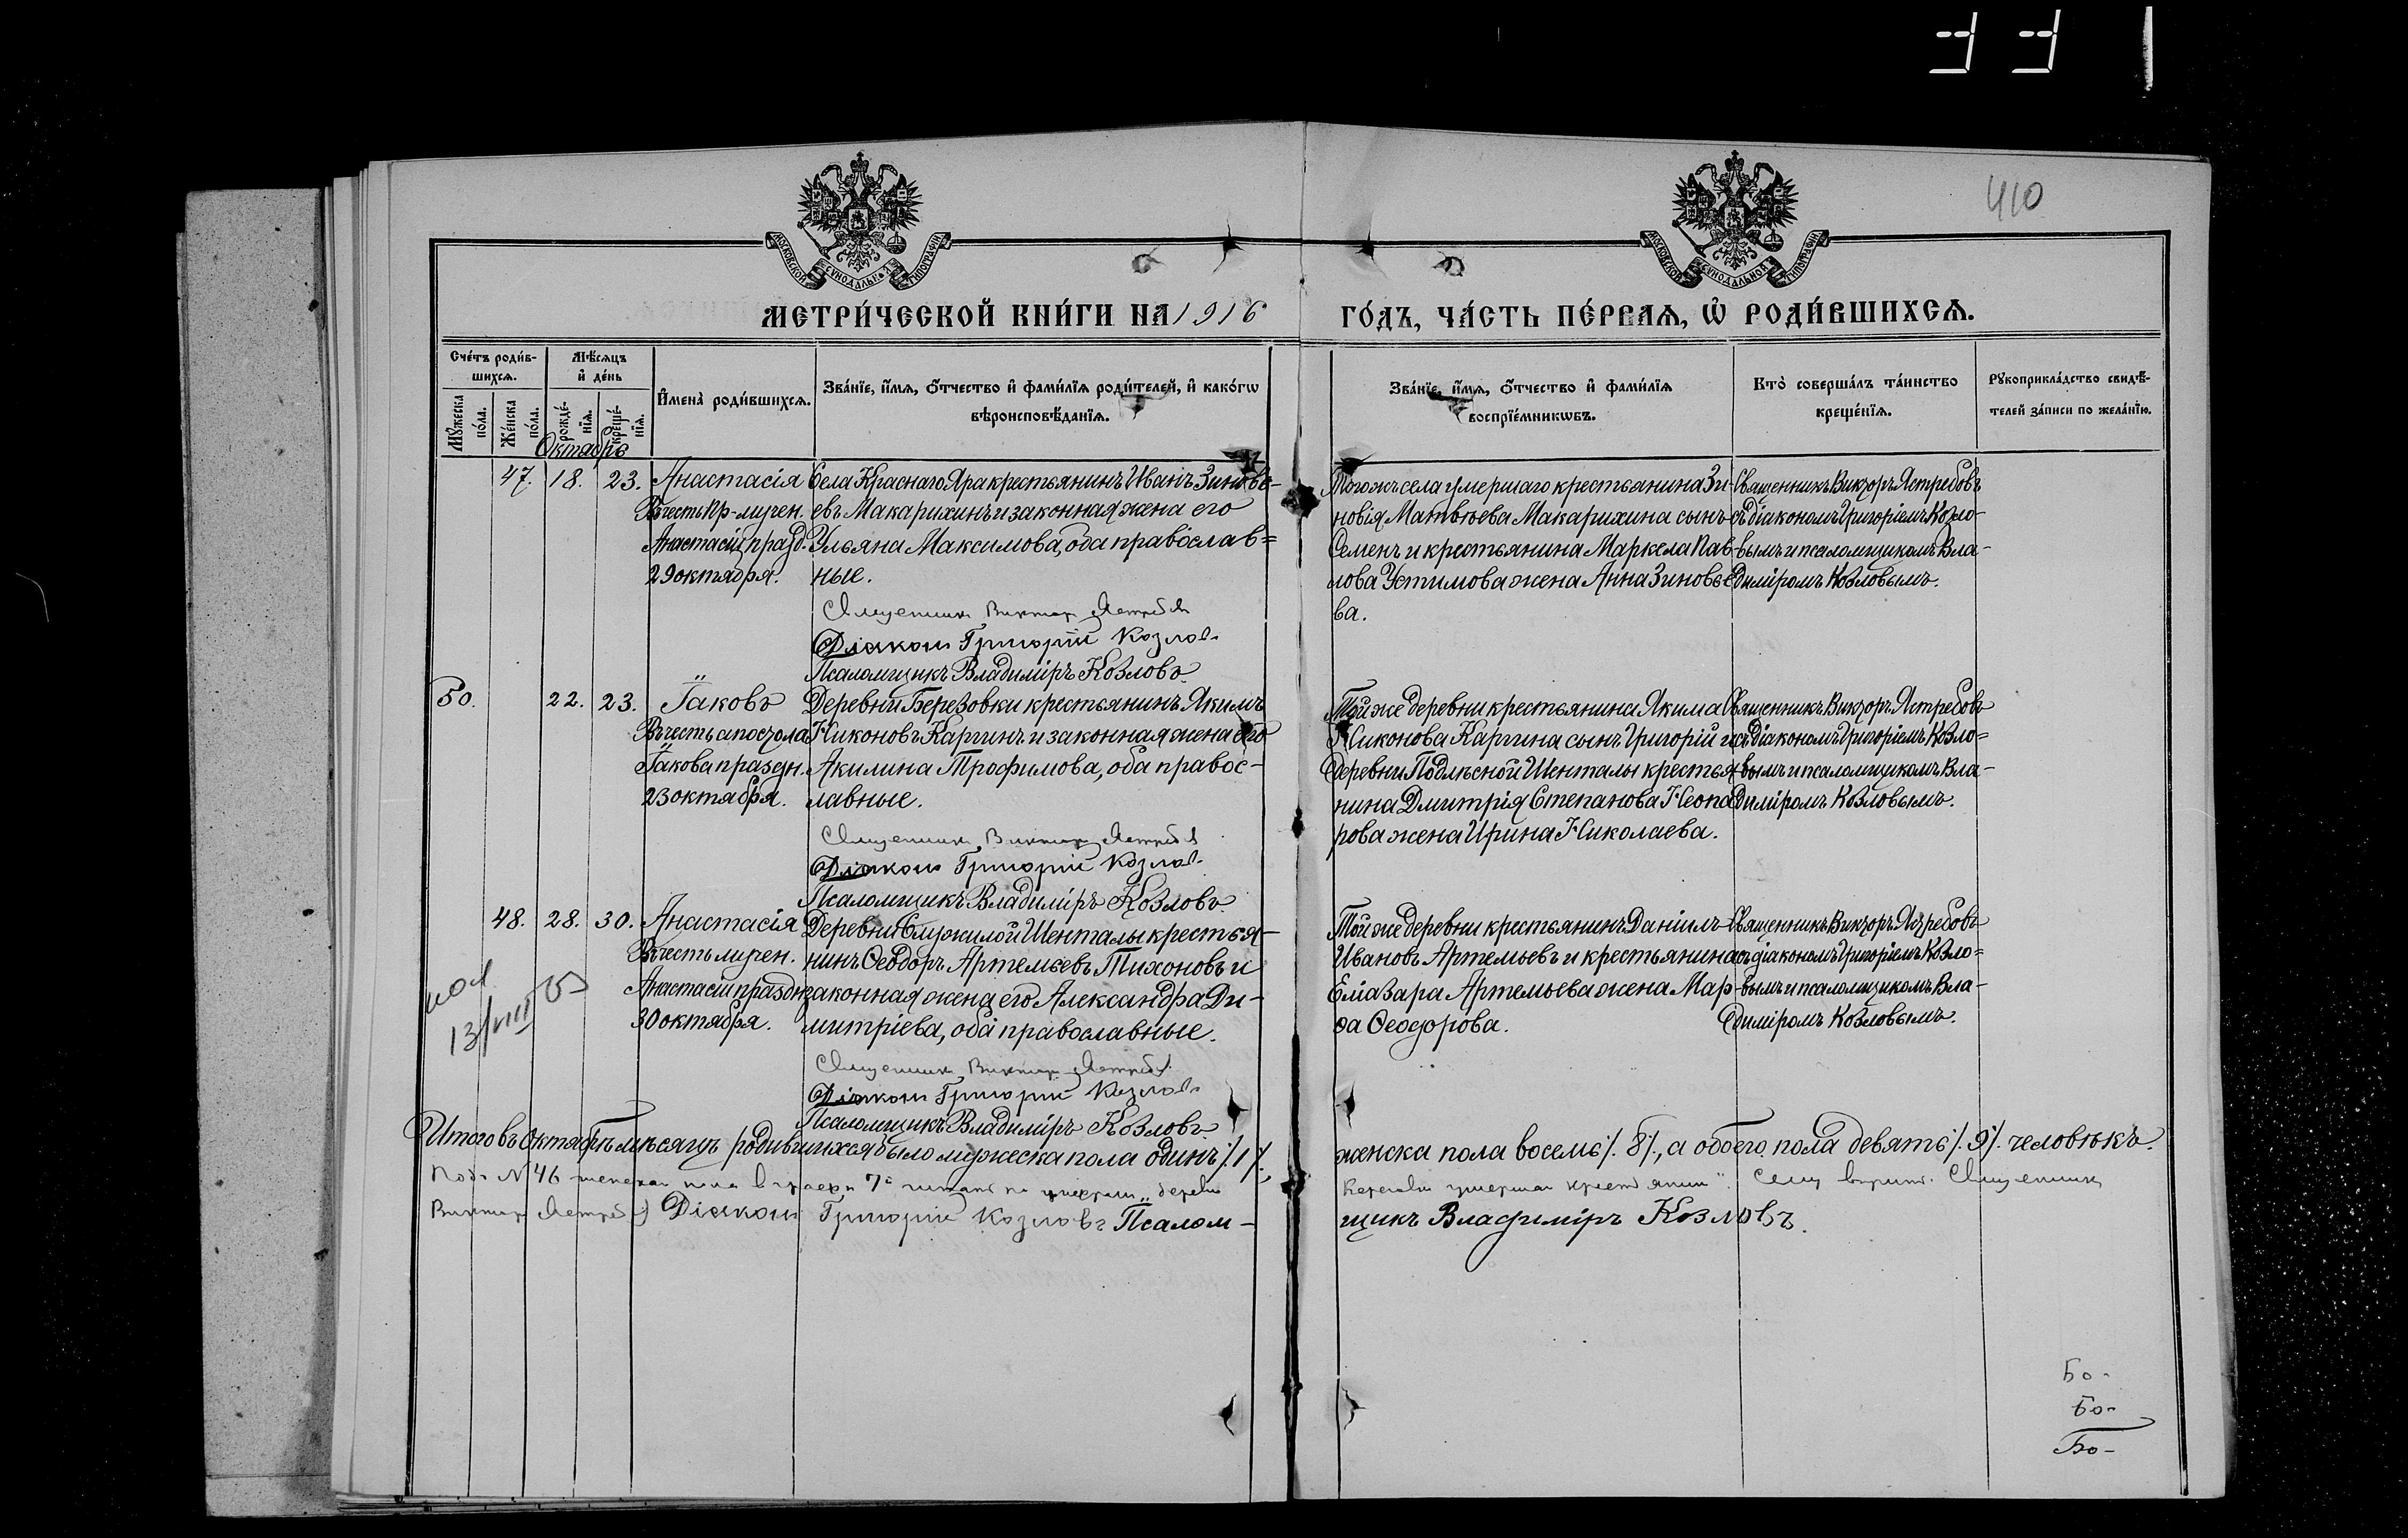 410
МОСКОВСКОЙ СѴНОДАЛЬНОЙ ТИПОГРАФІИ
МОСКОВСКОЙ СѴНОДАЛЬНОЙ ТИПОГРАФІИ
МЕТРИ́ЧЕСКОЙ КНИ́ГИ НА 1916 ГО́ДЪ, ЧА́СТЬ ПЕ́РВАѦ, Ѡ҆ РОДИ́ВШИХСѦ.
Сче́тъ роди́в-
шихсѧ.
Мꙋ́жеска по́ла.
Же́нска по́ла.
Мѣ́сѧцъ
и҆ де́нь
рожде́-
нїѧ.
креще́-
нїѧ.
И҆мена̀ роди́вшихсѧ.
Зва́нїе, и҆́мѧ, ѻ҆́тчество и҆ фами́лїѧ роди́телей, и҆ како́гѡ
вѣроисповѣ́данїѧ.
Зва́нїе, и҆́мѧ, ѻ҆́тчество и҆ фами́лїѧ
воспрїе́мникѡвъ.
Кто̀ соверша́лъ та́инство
креще́нїѧ.
Рꙋкоприкла́дство свидѣ́-
телей за́писи по жела́нїю.
Октябрь
47. 18. 23.
Анастасія
Въ честь Пр-мучен.
Анастасіи празд.
29 октября.
Села Краснаго Яра крестьянинъ Иванъ Зиновь-
евъ Макарихинъ и законная жена его
Ульяна Максимова, оба православ=
ные.
Священникъ Викторъ Ястребовъ
Діаконъ Григорій Козловъ
Псаломщикъ Владиміръ Козловъ.
Того жъ села умершаго крестьянина Зи-
новія Матвѣева Макарихина сынъ
Семенъ и крестьянина Маркела Пав-
лова Устимова жена Анна Зиновье-
ва.
Священникъ Викторъ Ястребовъ
съ діакономъ Григоріемъ Козло-
вымъ и псаломщикомъ Вла-
диміромъ Козловымъ.
50. 22. 23.
Іаковъ
Въ честь апостола
Іакова праздн.
23 октября.
Деревни Березовки крестьянинъ Якимъ
Никоновъ Каргинъ и законная жена его
Акилина Трофимова, оба правос-
лавные.
Священникъ Викторъ Ястребовъ
Діаконъ Григорій Козловъ
Псаломщикъ Владиміръ Козловъ.
Той же деревни крестьянина Якима
Никонова Каргина сынъ Григорій и
деревни Подлѣсной Шенталы крестья-
нина Дмитрія Степанова
рова жена Ирина Николаева.
Священникъ Викторъ Ястребовъ
съ діакономъ Григоріемъ Козло=
вымъ и псаломщикомъ Вла-
диміромъ Козловымъ.
48. 28. 30.
Анастасія
Въ честь мучен.
Анастасіи праздн.
30 октября.
Деревни Служилой Шенталы крестья-
нинъ Ѳеодоръ Артемьевъ Тихоновъ и
законная жена его Александра Ди-
митріева, оба православные.
Священникъ Викторъ Ястребовъ
Діаконъ Григорій Козловъ
Псаломщикъ Владиміръ Козловъ.
Той же деревни крестьянинъ Даніилъ
Ивановъ Артемьевъ и крестьянина
Еліазара Артемьева жена Мар-
ѳа Ѳеодорова.
Священникъ Викторъ Ястребовъ
съ діакономъ Григоріемъ Козло=
вымъ и псаломщикомъ Вла-
диміромъ Козловымъ.
13/VIII
Итого въ Октябрѣ мѣсяцѣ родившихся было мужеска пола одинъ /.1/.,
женска пола восемь /.8/., а обоего пола девять /.9/. человѣкъ.
Подъ № 46 женскаго пола въ графѣ 7й читать по деревни
умершаго крестьянина". Сему вѣрить. Священникъ
Викторъ Ястребовъ Діаконъ Григорій Козловъ Псалом-
щикъ Владиміръ Козловъ.